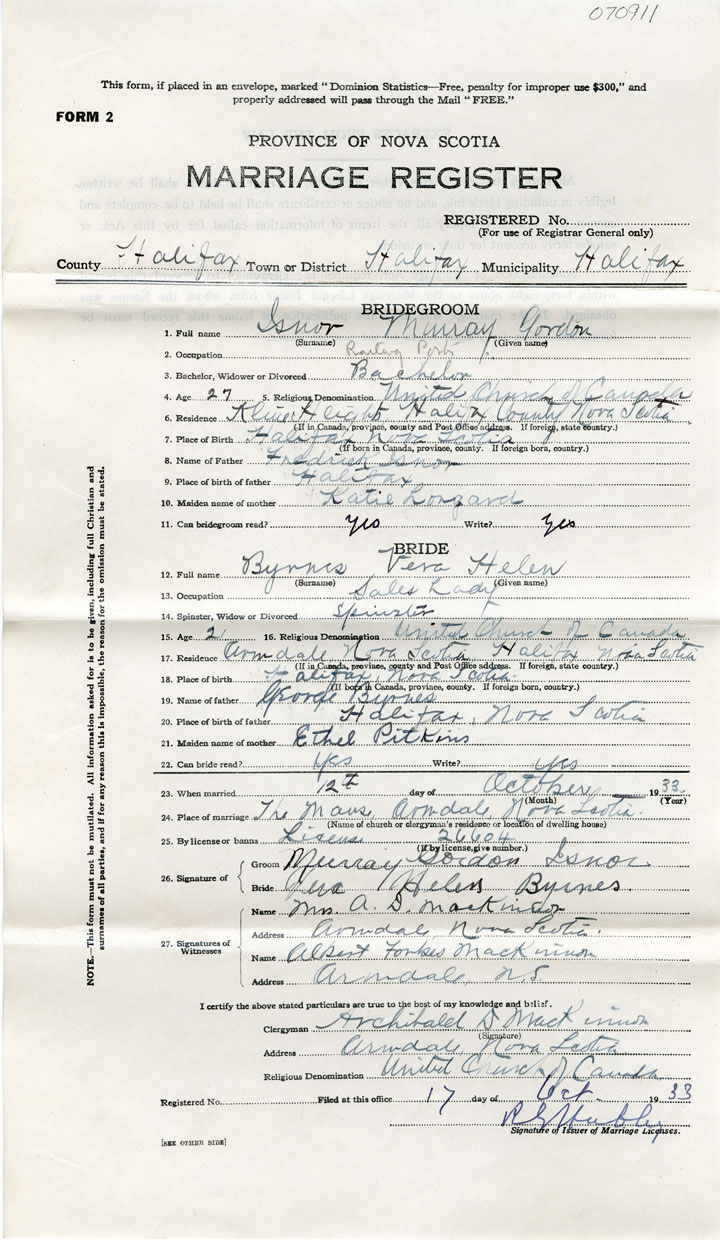 070911
This form, if placed in an envelope, marked "Dominion Statistics—Free, penalty for improper use $300," and
properly addressed will pass through the Mail "FREE."
FORM 2
PROVINCE OF NOVA SCOTIA
MARRIAGE REGISTER
REGISTERED No.
(For use of Registrar General only)
County Halifax Town or District Halifax Municipality Halifax
BRIDEGROOM
1. Full name Isnor Murray Gordon
(Surname) (Given name)
2. Occupation
3. Bachelor, Widower or Divorced Bachelor
4. Age 27 5. Religious Denomination United Church of Canada
6. Residence Kline Height Halifax County Nova Scotia
(If in Canada, province, county and Post Office address. If foreign, state country.)
7. Place of Birth Halifax Nova Scotia
(If born in Canada, province, county. If foreign born, country.)
8. Name of Father Fredrick Isnor
9. Place of birth of father Halifax
10. Maiden name of mother Katie Longard
11. Can bridegroom read? yes Write? yes
BRIDE
12. Full name Byrnes Vera Helen
(Surname) (Given name)
13. Occupation Sales Lady
14. Spinster, Widow or Divorced Spinster
15. Age 2 16. Religious Denomination United Church of Canada
17. Residence Armdale Nova Scotia Halifax Nova Scotia
(If in Canada, province, county and Post Office address. If foreign, state country.)
18. Place of birth Halifax, Nova Scotia.
(If born in Canada, province, county. If foreign born, country.)
19. Name of father George Byrnes
20. Place of birth of father Halifax, Nova Scotia
21. Maiden name of mother Ethel Pitkins
22. Can bride read? Yes Write? yes
23. When married 12th day of October 1933
(Month) (Year)
24. Place of marriage The Mans, Armdale Nova Scotia.
(Name of church or clergyman's residence or location of dwelling house)
25. By license or banns Lisense 26604
(If by license, give number.)
26. Signature of
Groom Murray Gordon Isnor
Bride Vera Helen Byrnes.
27. Signatures of Witnesses
Name Mrs. A. D. MacKinnon
Address Armdale, Nova Scotia.
Name Albert Forbes MacKinnon
Address Armdale, N.S.
I certify the above stated particulars are true to the best of my knowledge and belief.
Clergyman Archibald D MacKinnon
(Signature)
Address Armdale, Nova Scotia
Religious Denomination United Church of Canada
Registered No. Filed at this office 17 day of Oct. 1933
Signature of Issuer of Marriage Licenses.
[SEE OTHER SIDE]
NOTE.—This form must not be mutilated. All information asked for is to be given, including full Christian and
surnames of all parties, and if for any reason this is impossible, the reason for the omission must be stated.